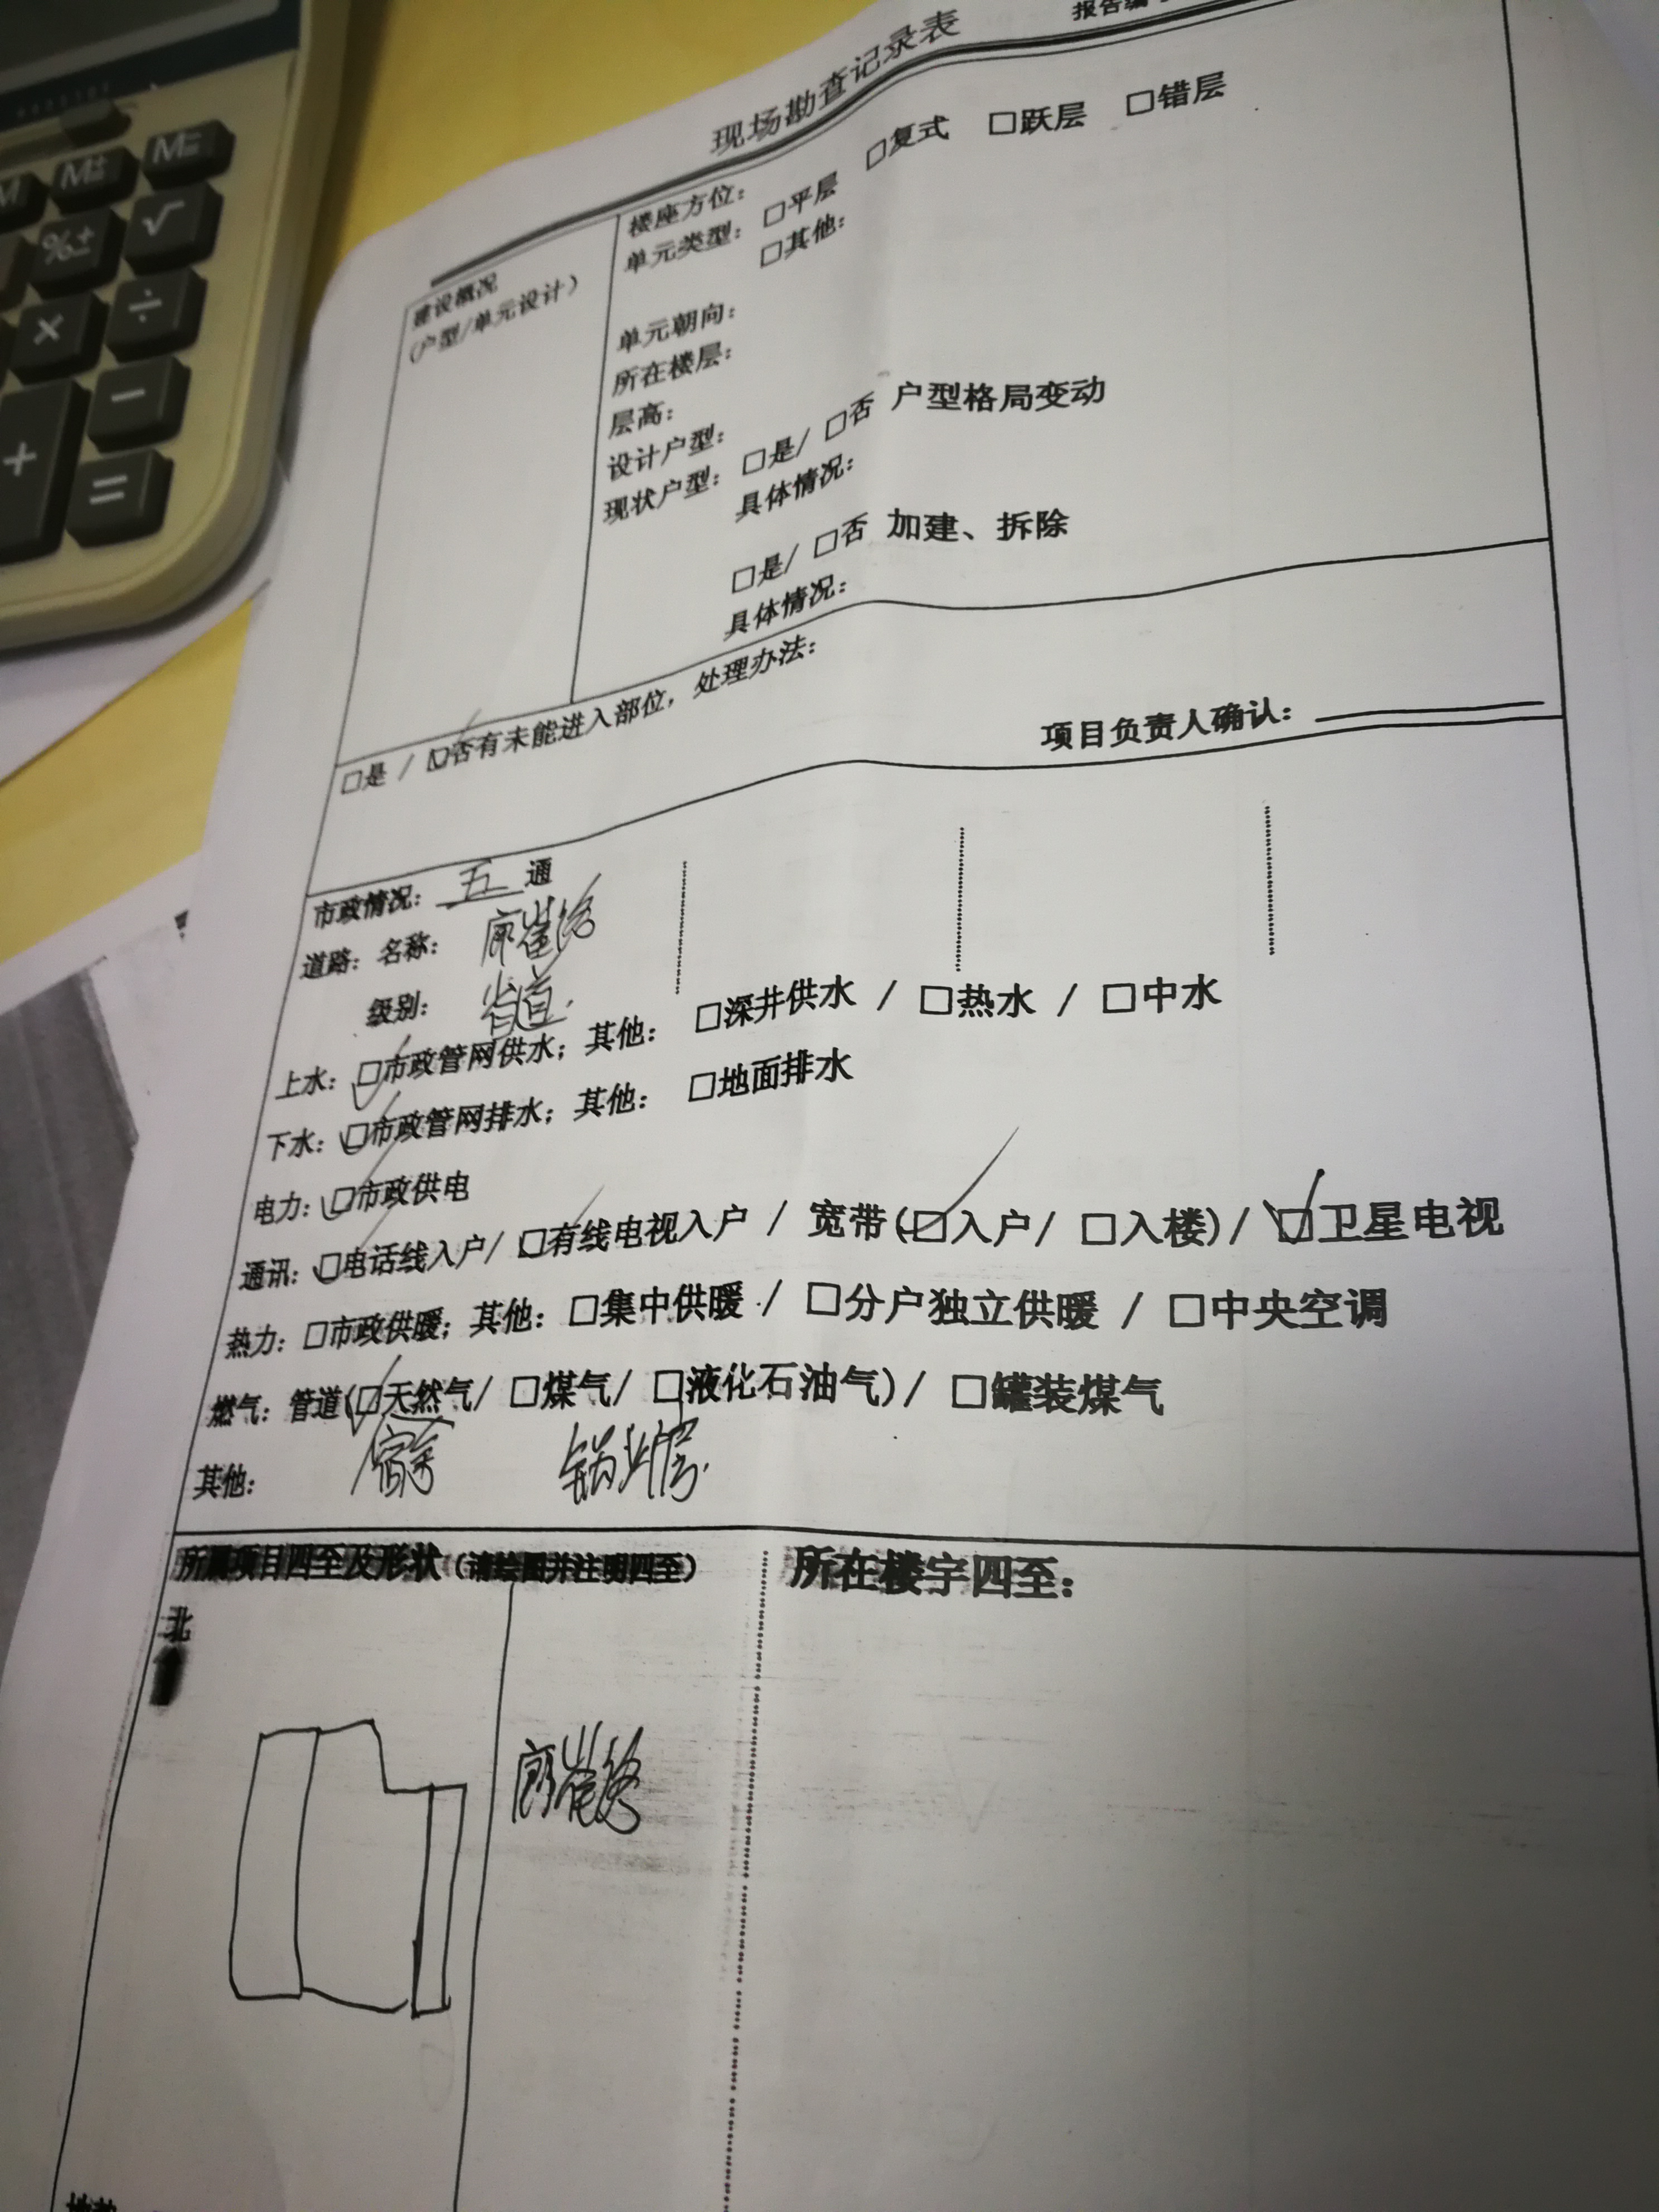 M±
M=
%±
√
×
÷
−
+
=
现场勘查记录表
报告编
建设概况
(户型/单元设计)
楼座方位:
单元类型: □平层 □复式 □跃层 □错层
□其他:
单元朝向:
所在楼层:
层高:
设计户型:
现状户型: □是/ □否 户型格局变动
具体情况:
□是/ □否 加建、拆除
具体情况:
□是 / ☑否有未能进入部位, 处理办法:
项目负责人确认:
市政情况: 五 通
道路: 名称:
级别: 省道
上水: ☑市政管网供水; 其他: □深井供水 / □热水 / □中水
下水: ☑市政管网排水; 其他: □地面排水
电力: ☑市政供电
通讯: ☑电话线入户/ ☑有线电视入户 / 宽带(☑入户/ □入楼)/ ☑卫星电视
热力: □市政供暖; 其他: □集中供暖 / □分户独立供暖 / □中央空调
燃气: 管道(☑天然气/ □煤气/ □液化石油气)/ □罐装煤气
其他:
所属项目四至及形状(请绘图并注明四至)
所在楼宇四至:
北